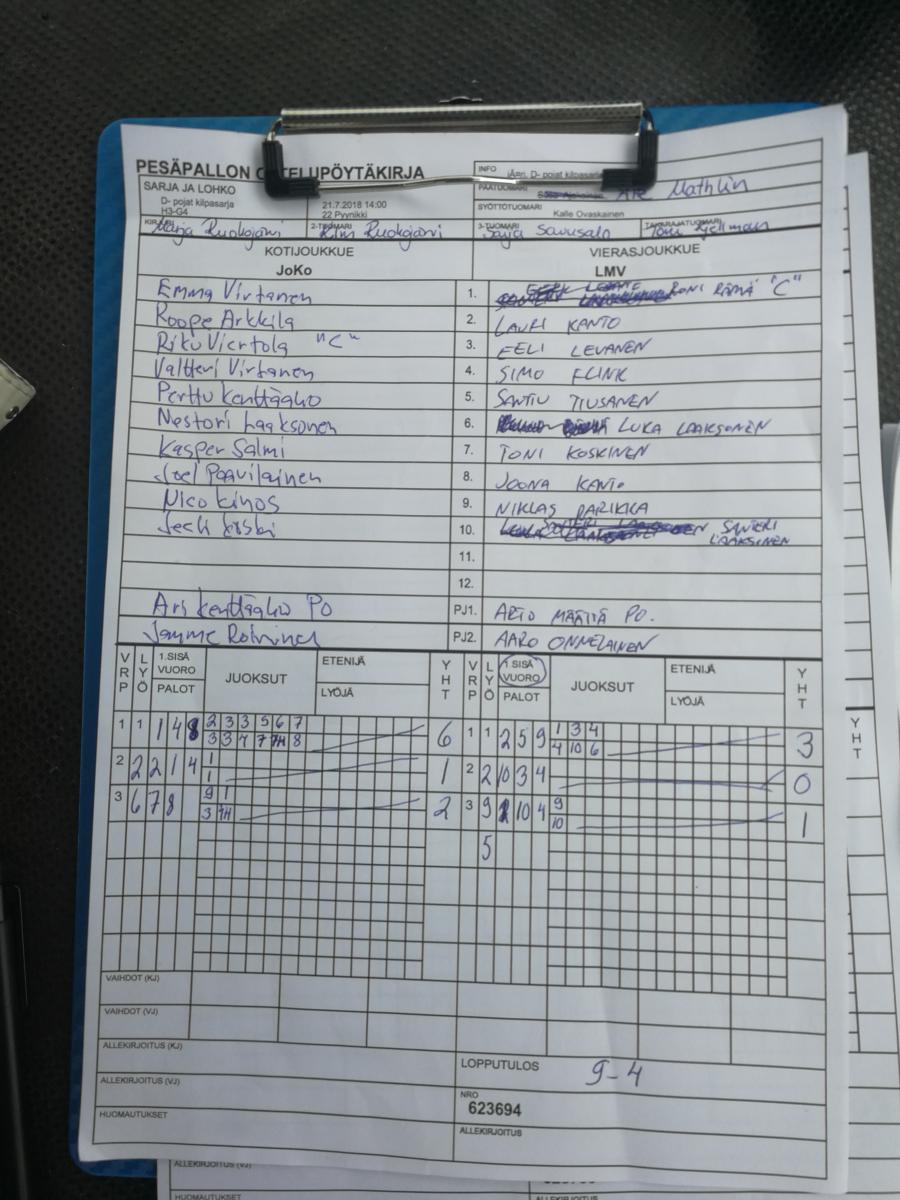 PESÄPALLON OTTELUPÖYTÄKIRJA
INFO
D- pojat kilpasarja
SARJA JA LOHKO
D- pojat kilpasarja
H3-G4
21.7.2018 14:00
22 Pyynikki
PÄÄTUOMARI
Mathlin
SYÖTTÖTUOMARI
Kalle Ovaskainen
Marja Ruokojärvi
2-TUOMARI Kim Ruokojärvi
3-TUOMARI Saija Savusalo
TAKARAJATUOMARI
KOTIJOUKKUE VIERASJOUKKUE
JoKo LMV
Emma Virtanen 1. RONI RÄMÄ "C"
Roope Arkkila 2. LAURI KANTO
Riku Viertola "C" 3. EELI LEVANEN
Valtteri Virtanen 4. SIMO FLINK
Perttu Kenttäaho 5. SANTTU TIUSANEN
Nestori Laaksonen 6. LUKA LAAKSONEN
Kasper Salmi 7. TONI KOSKINEN
Joel Paavilainen 8. JOONA KANTO
Nico Kinos 9. NIKLAS PARIKKA
10. SANTERI LAAKSONEN
11.
12.
Ari Kenttäaho PO PJ1. ARTO MÄÄTTÄ PO.
PJ2. AARO ONNELAINEN
VRP LYÖ 1.SISÄ VUORO PALOT JUOKSUT ETENIJÄ LYÖJÄ YHT VRP LYÖ 1.SISÄ VUORO PALOT JUOKSUT ETENIJÄ LYÖJÄ YHT
1 1 1 4 8 2 3 3 5 6 7 6 1 1 2 5 9 1 3 4 3
3 3 4 7 7 8 4 10 6
2 2 2 1 4 1 1 2 2 10 3 4 0
1
3 6 7 8 9 1 2 3 9 10 4 9 1
3 10
5
VAIHDOT (KJ)
VAIHDOT (VJ)
ALLEKIRJOITUS (KJ)
LOPPUTULOS 9-4
ALLEKIRJOITUS (VJ)
NRO
623694
HUOMAUTUKSET
ALLEKIRJOITUS
YHT
ALLEKIRJOITUS (VJ)
HUOMAUTUKSET
ALLEKIRJOITUS